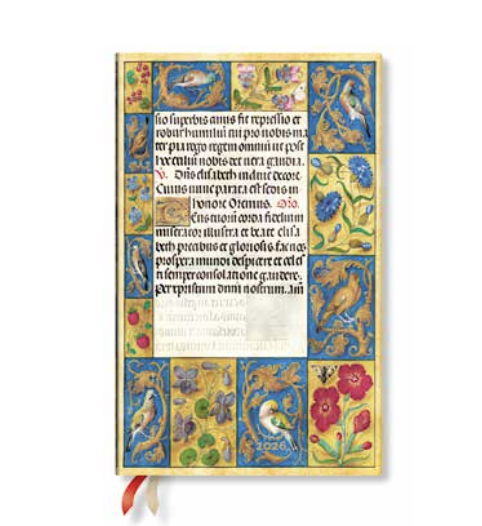 sio superbis annis fit repressio et
robur humiliū tui pro nobis ma
ter pia rogo regem omniū ut post
hoc exiliū nobis det vera gaudia.
V. Dn̄s elisabeth induit decore.
Cuius nunc parata est sedis in
honore Oremus. Oro.
tuorū corda fidelium
miserator illustra et beate elisa
beth precibus et gloriosis fac nos
prospera mundi despicere et celes
ti semper consolatione gaudere.
Per xpristum dnm̄ nostrum. am̄
2026